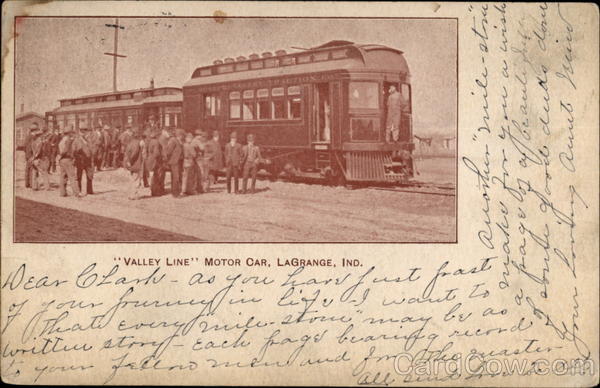 "VALLEY LINE" MOTOR CAR, LAGRANGE, IND.
Dear Clark - as you have just past
of your journey in life - I want to
that every "mile-stone" may be as
written story - Each page bearing record
to your fellow men and for the master
All
Another "mile-stone"
makes for you a wish
a page of a beautifully
of some good deeds done
Your loving Aunt
CardCow.com